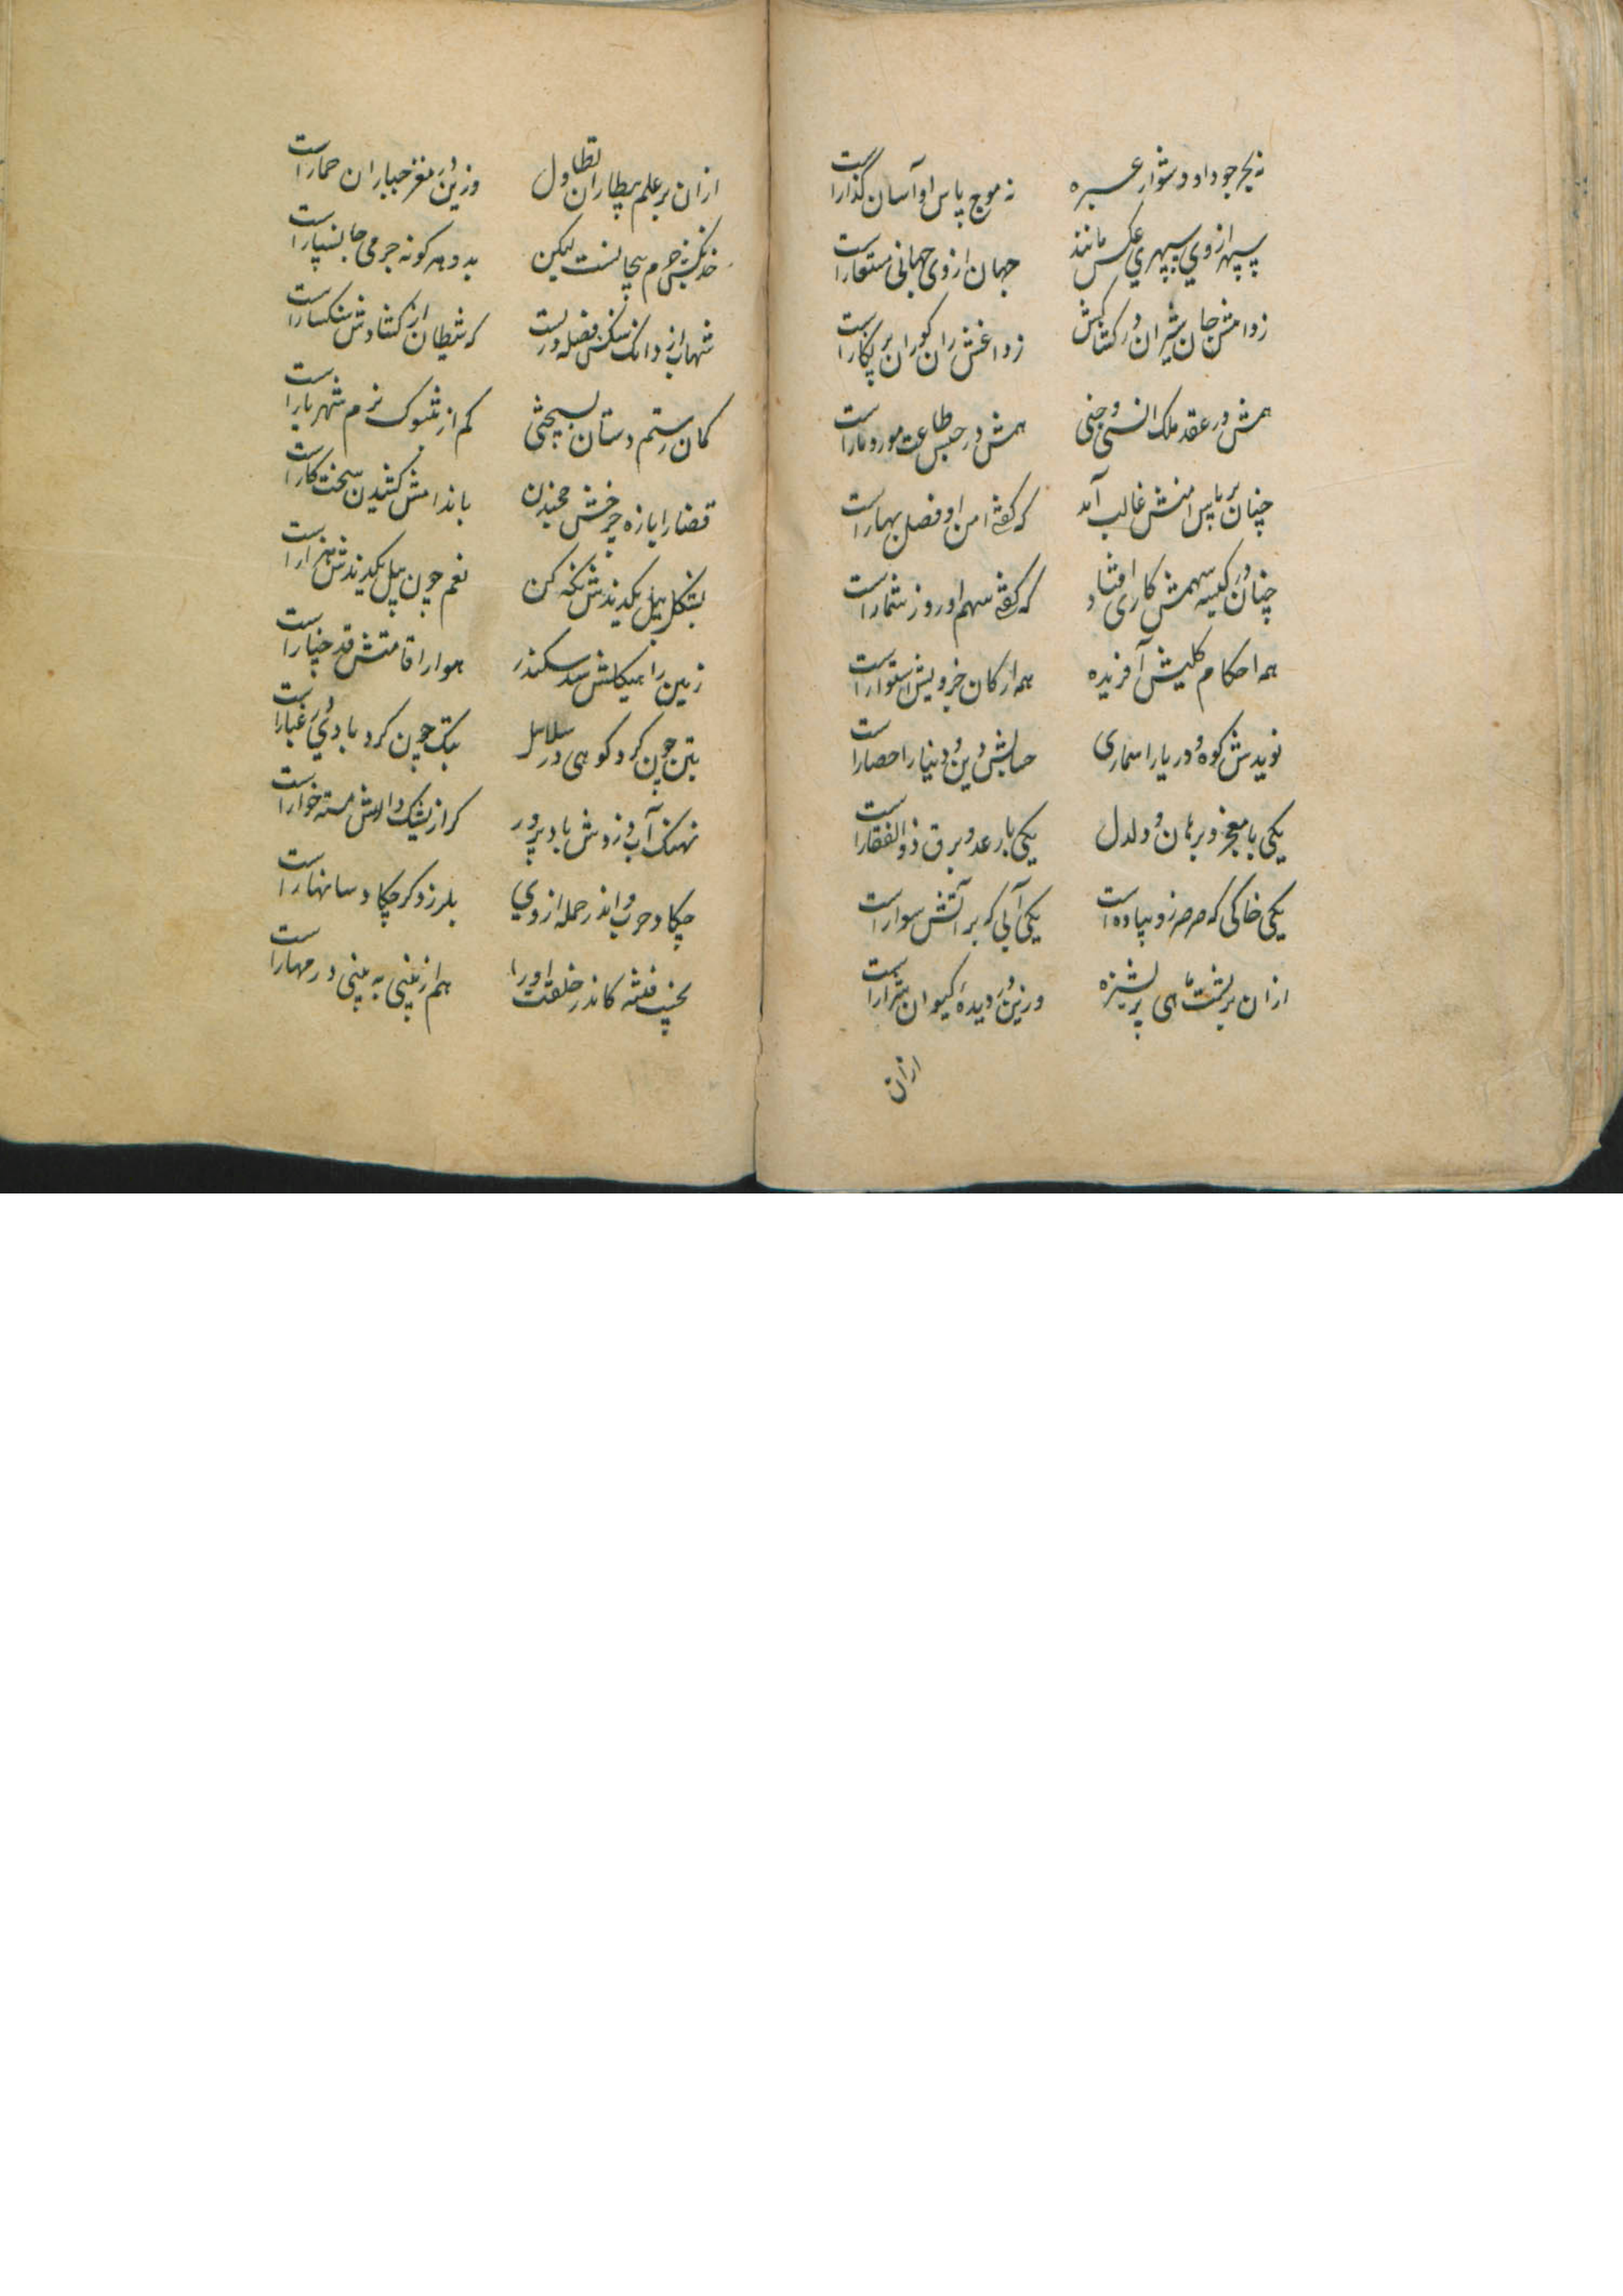 نه بحر جود او دشوار عبره نه موج باس او آسان گذارا است
سپهر از وی سپهری عکس مانند جهان از وی جهانی مستعارا است
ز دامش جان شیران در کشاکش ز داغش ران گوران پر نکارا است
همش در عقد ملک انسی و جنی همش در حبس طاعت مور و مارا است
چنان بر باس امنش غالب آمد که گفته امن او فصل بهارا است
چنان در کیسه سهمش کاری افتاد که گفته سهم او روز شمارا است
همه احکام کلیش آفریده همه ارکان جزویش استوارا است
نویدش کوه و دریا را عماری حسابش دین و دنیا را حصارا است
یکی با معجز و برهان و دلدل یکی با رعد و برق ذوالفقارا است
یکی خاکی که صرصر زو پیاده است یکی آبی که بر آتش سوارا است
ازان بر پشت ماهی پر پشیزه وزین در دیده کیوان شرارا است
ازان
ازان بر علم بیطاران تطاول وزین در مغز جباران خمارا است
خدنکش جرم بیجانست لیکن بدو هر کونه جرمی جانسپارا است
شهاب از دانک سنکش فضله دزدیست که شیطان از کشادش سنکسارا است
کمان رستم دستان کم از شوک نرم شهریارا است
قضا را بازه چرخش خمیدن باندامش کشیدن سخت کارا است
بشکل پیل یکدندش نکه کن نعم چون پیل یکدندش هزارا است
زمین را هیکلش سد سکندر هوا را قامتش قد خیارا است
بتن چون کرد کوهی در سلاسل بتک چون کرد بادی در غبارا است
نهنک آب ورزدش باد پرور کراز یشک دالش مسته خوارا است
چکاد حرب و اندر حمله از وی بلرزد کر چکاد سانهارا است
بخسب فتنه کاندر خلقت او را هم از بینی به بینی در مهارا است